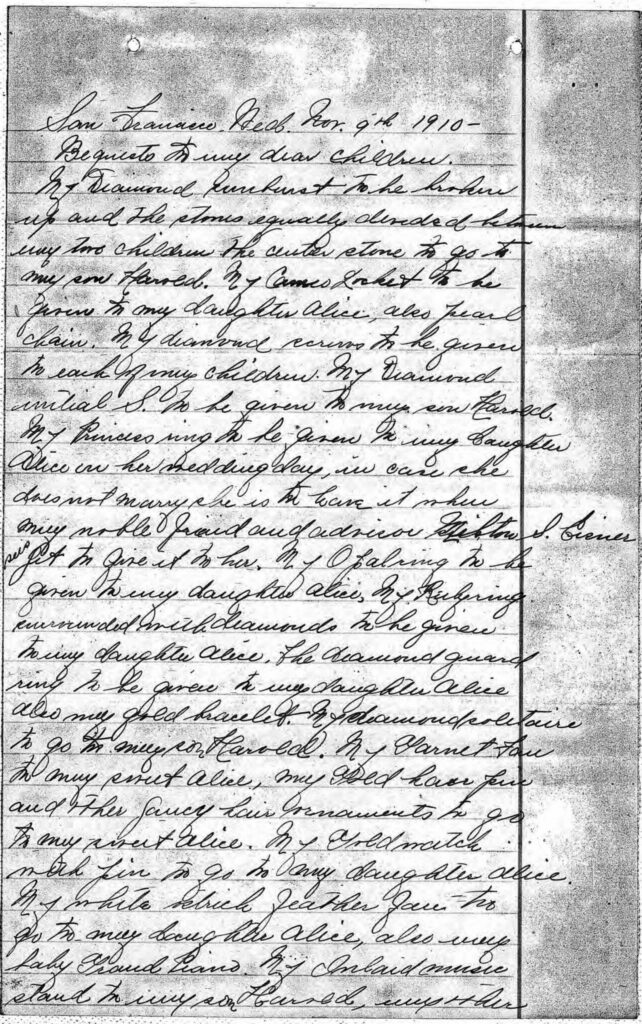 San Francisco. Wed. Nov. 9th 1910-
Bequests to my dear children.
My Diamond sunburst to be broken
up and the stones equally divided between
my two children the center stone to go to
my son Harold. My Cameo Locket to be
given to my daughter Alice, also pearl
chain. My diamond screws to be given
to each of my children. My Diamond
initial S. to be given to my son Harold.
My Princess ring to be given to my daughter
Alice on her wedding day, in case she
does not marry she is to have it when
my noble friend and advisor Milton S. Eisner
sees fit to give it to her. My Opal ring to be
given to my daughter Alice, My Ruby ring
surrounded with diamonds to be given
to my daughter Alice, the diamond guard
ring to be given to my daughter Alice
also my gold bracelet. My diamond solitaire
to go to my son Harold. My Garnet Fan
to my sweet Alice, my Gold hair pin
and other fancy hair ornaments to go
to my sweet Alice. My Gold watch
with pin to go to my daughter Alice.
My white ostrich feather fan to
go to my daughter Alice, also my
baby Grand Piano. My Inlaid music
stand to my son Harold, my other